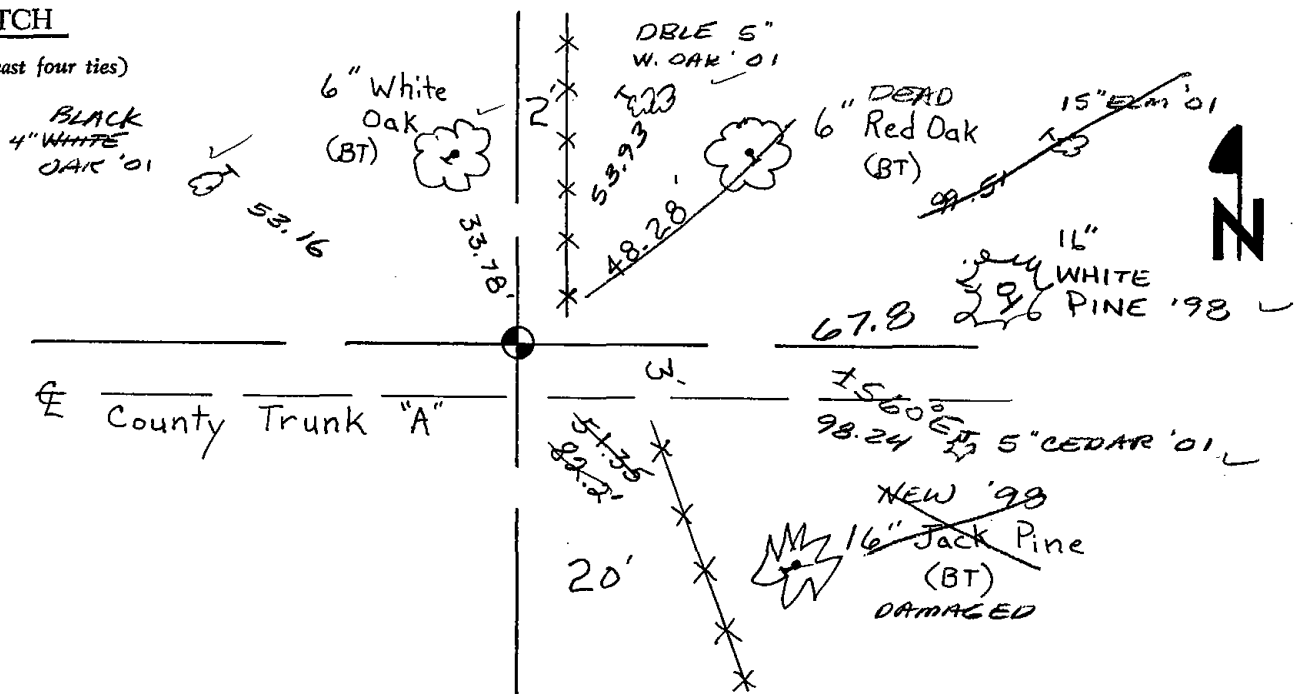 TCH
ast four ties)
BLACK
4" WHITE
OAK '01
53.16
6" White
Oak
(BT)
33.78'
2'
DBLE 5"
W. OAK '01
53.93
48.28'
DEAD
6" Red Oak
(BT)
15" ELM '01
99.51
N
16"
WHITE
PINE '98
67.8
3'
℄ County Trunk "A"
±S60°E
98.24 5" CEDAR '01
51.35
20'
NEW '98
16" Jack Pine
(BT)
DAMAGED